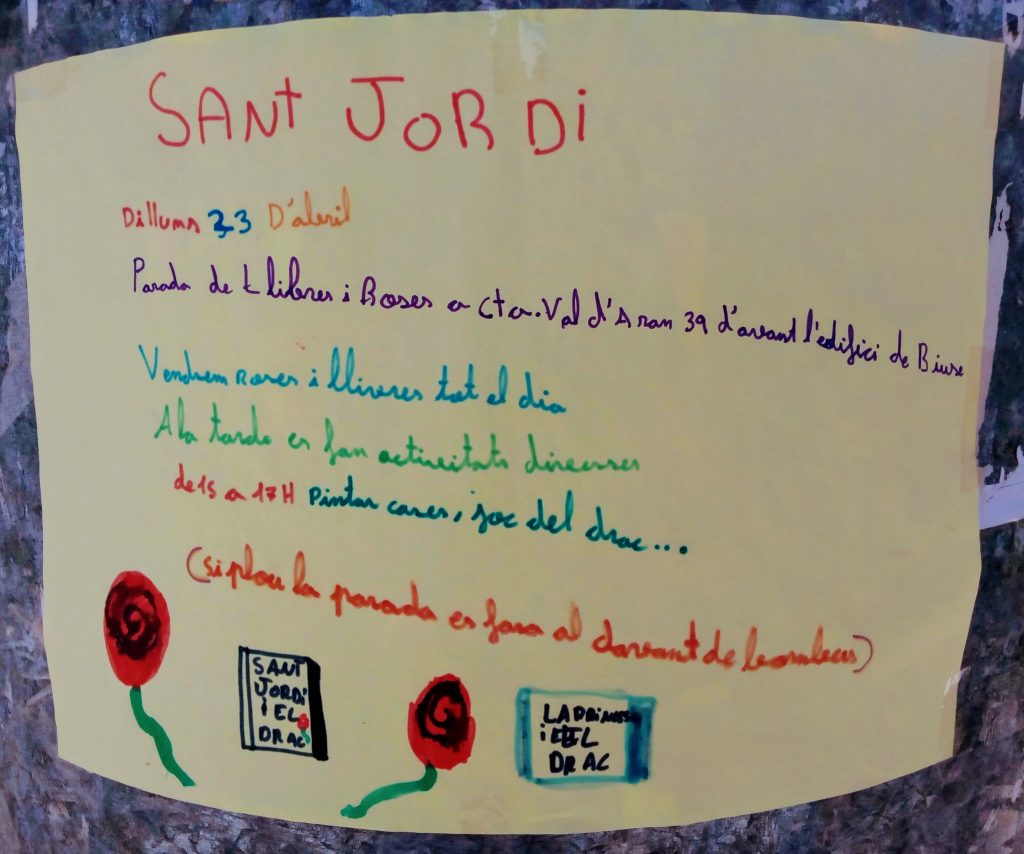 SANT JORDI
Dillums 23 D'abril
Parada de Llibres i Roses a Cta. Val d'Aran 39 d'avant l'edifici de Biuse
Vendrem Roses i llivres tot el dia
A la tarde es fan activitats diverses
de 15 a 17H Pintar cares, joc del drac...
(si plou la parada es fara al davant de bombers)
SANT
JORDI
i EL
DRAC
LA PRINCESA
i EL
DRAC